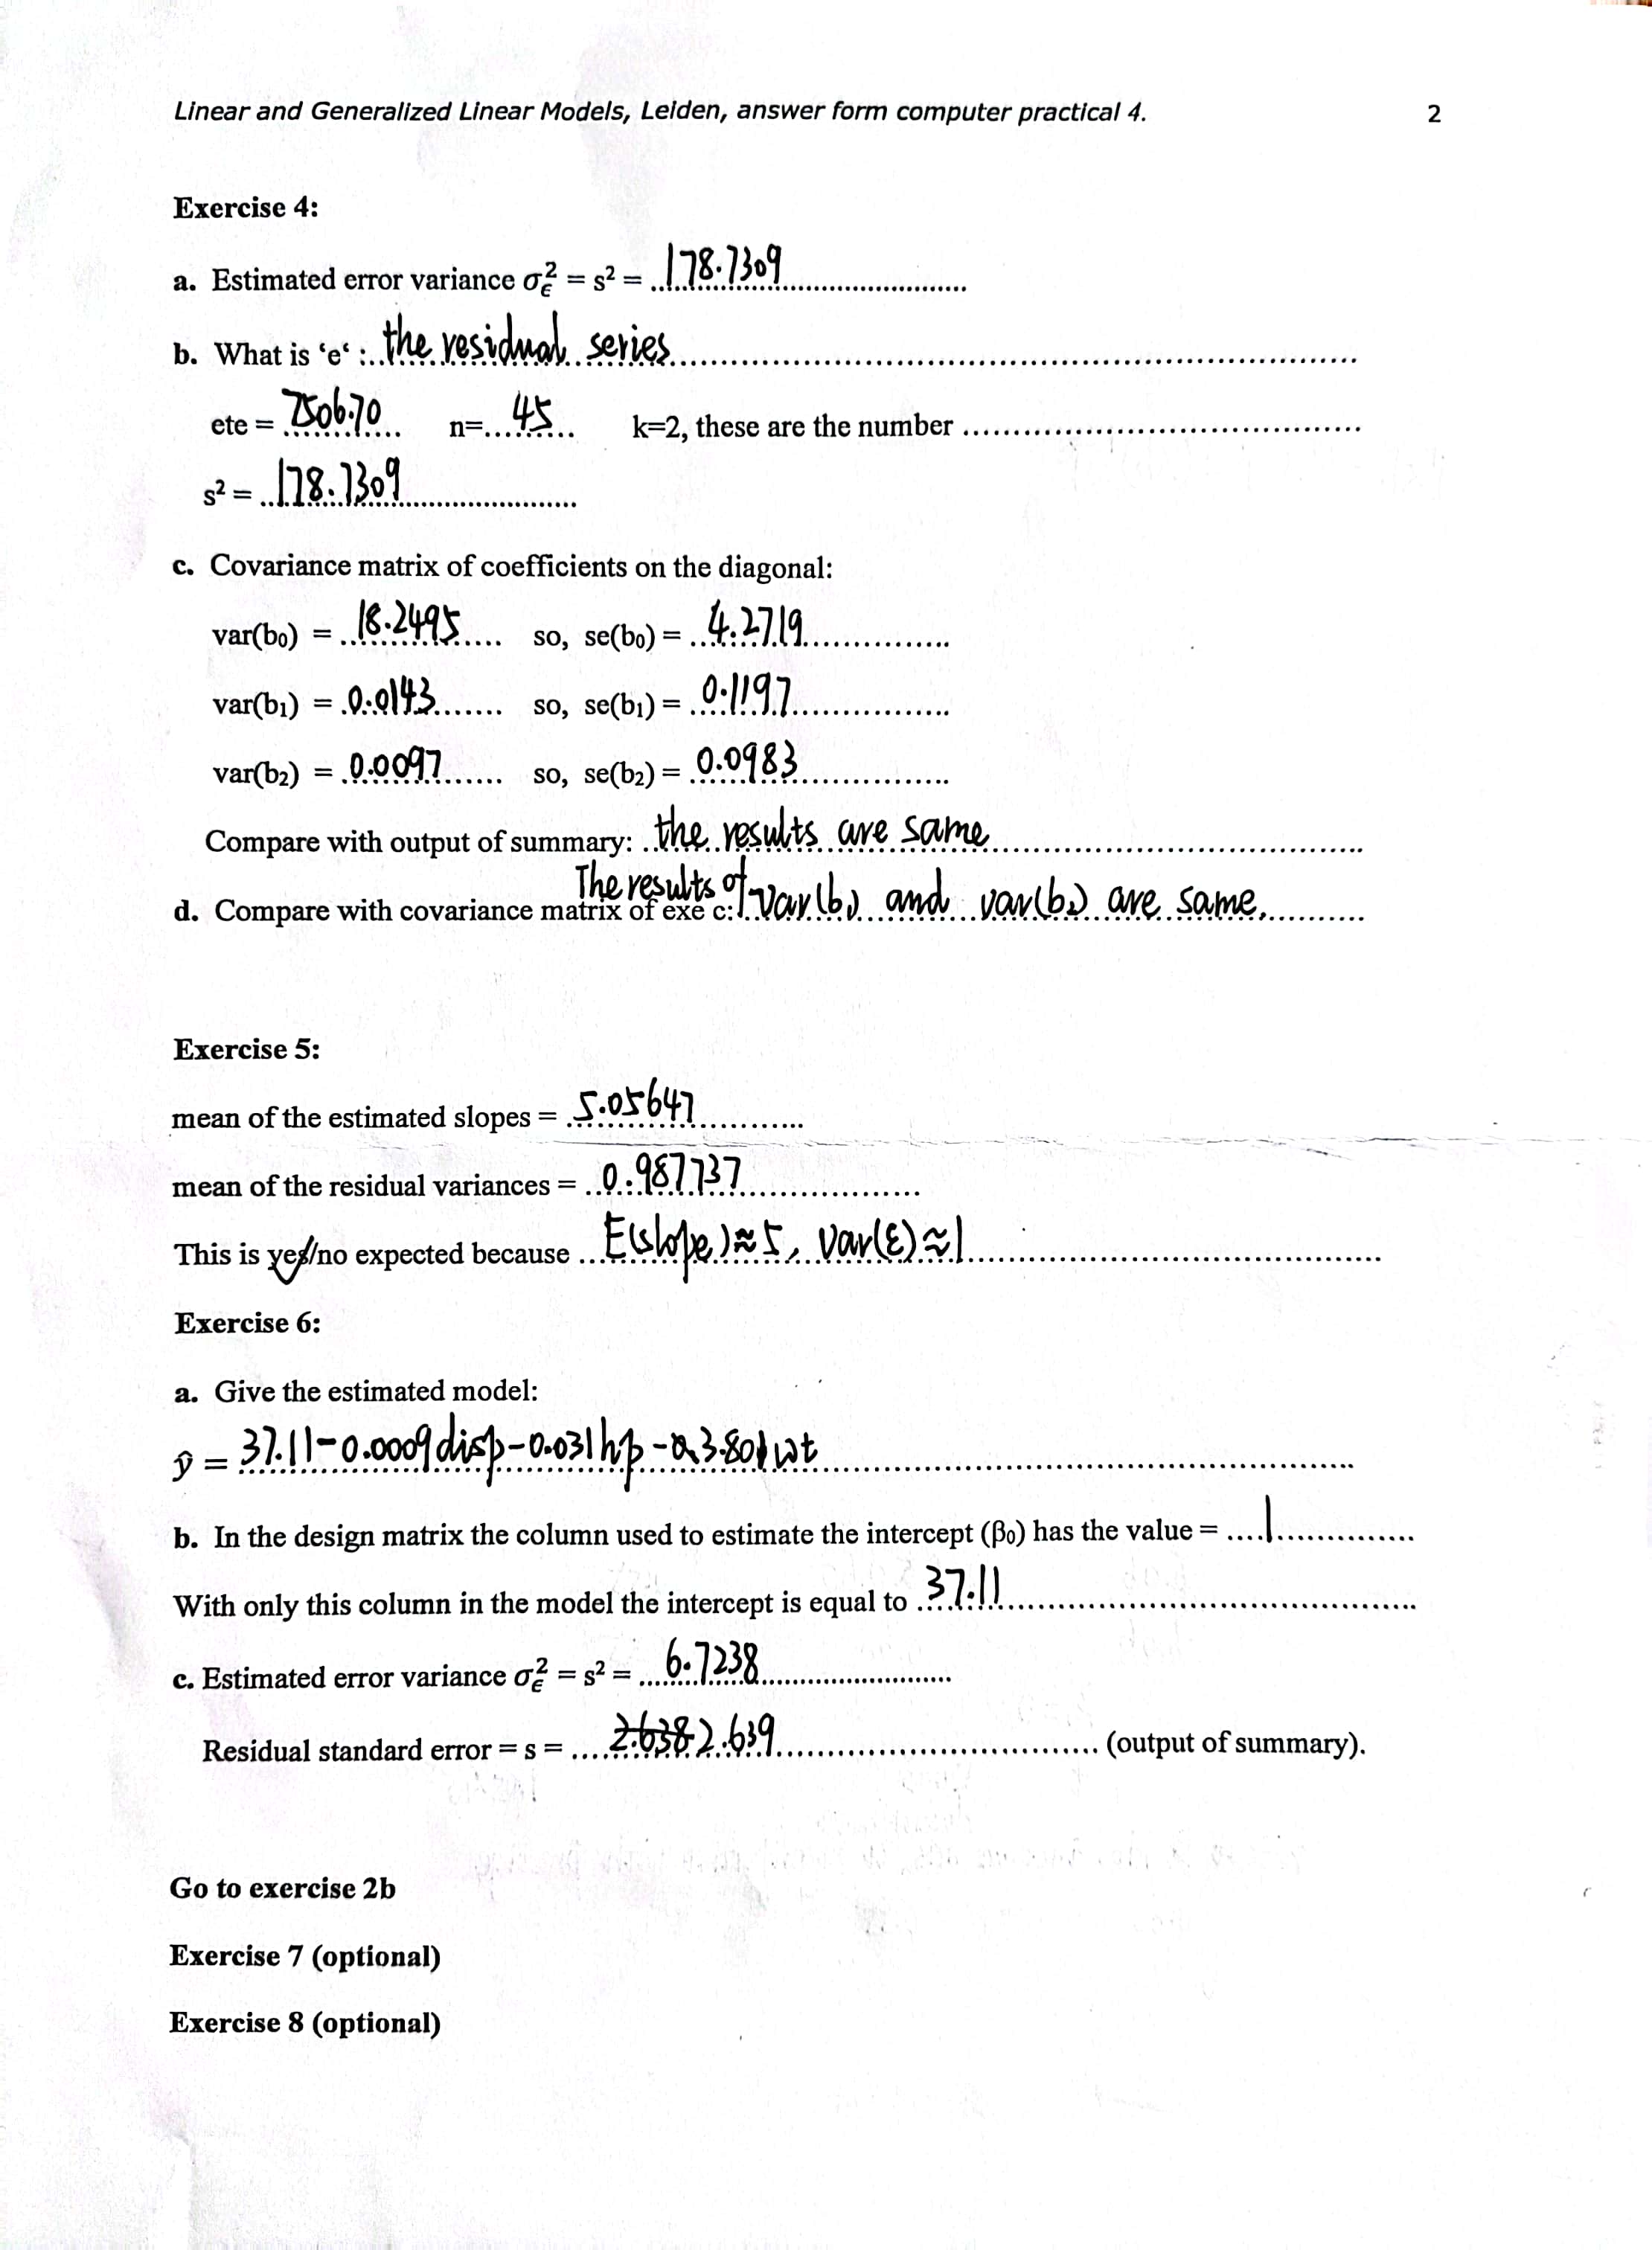 Linear and Generalized Linear Models, Leiden, answer form computer practical 4. 2
Exercise 4:
a. Estimated error variance σ²ϵ = s² = 178.7309
b. What is ‘e‘ : the residual series
ete = 7506.70 n= 45 k=2, these are the number
s² = 178.7309
c. Covariance matrix of coefficients on the diagonal:
var(b₀) = 18.2495 so, se(b₀) = 4.2719
var(b₁) = 0.0143 so, se(b₁) = 0.1197
var(b₂) = 0.0097 so, se(b₂) = 0.0983
Compare with output of summary: the results are same
d. Compare with covariance matrix of exe c: The results of var(b₁) and var(b₂) are same.
Exercise 5:
mean of the estimated slopes = 5.05647
mean of the residual variances = 0.987737
This is yes/no expected because E(slope)≈5, var(ε)≈1
Exercise 6:
a. Give the estimated model:
ŷ = 37.11-0.0009disp-0.031hp-3.801wt
b. In the design matrix the column used to estimate the intercept (β₀) has the value = 1
With only this column in the model the intercept is equal to 37.11
c. Estimated error variance σ²ϵ = s² = 6.7238
Residual standard error = s = 2.638 2.639 (output of summary).
Go to exercise 2b
Exercise 7 (optional)
Exercise 8 (optional)